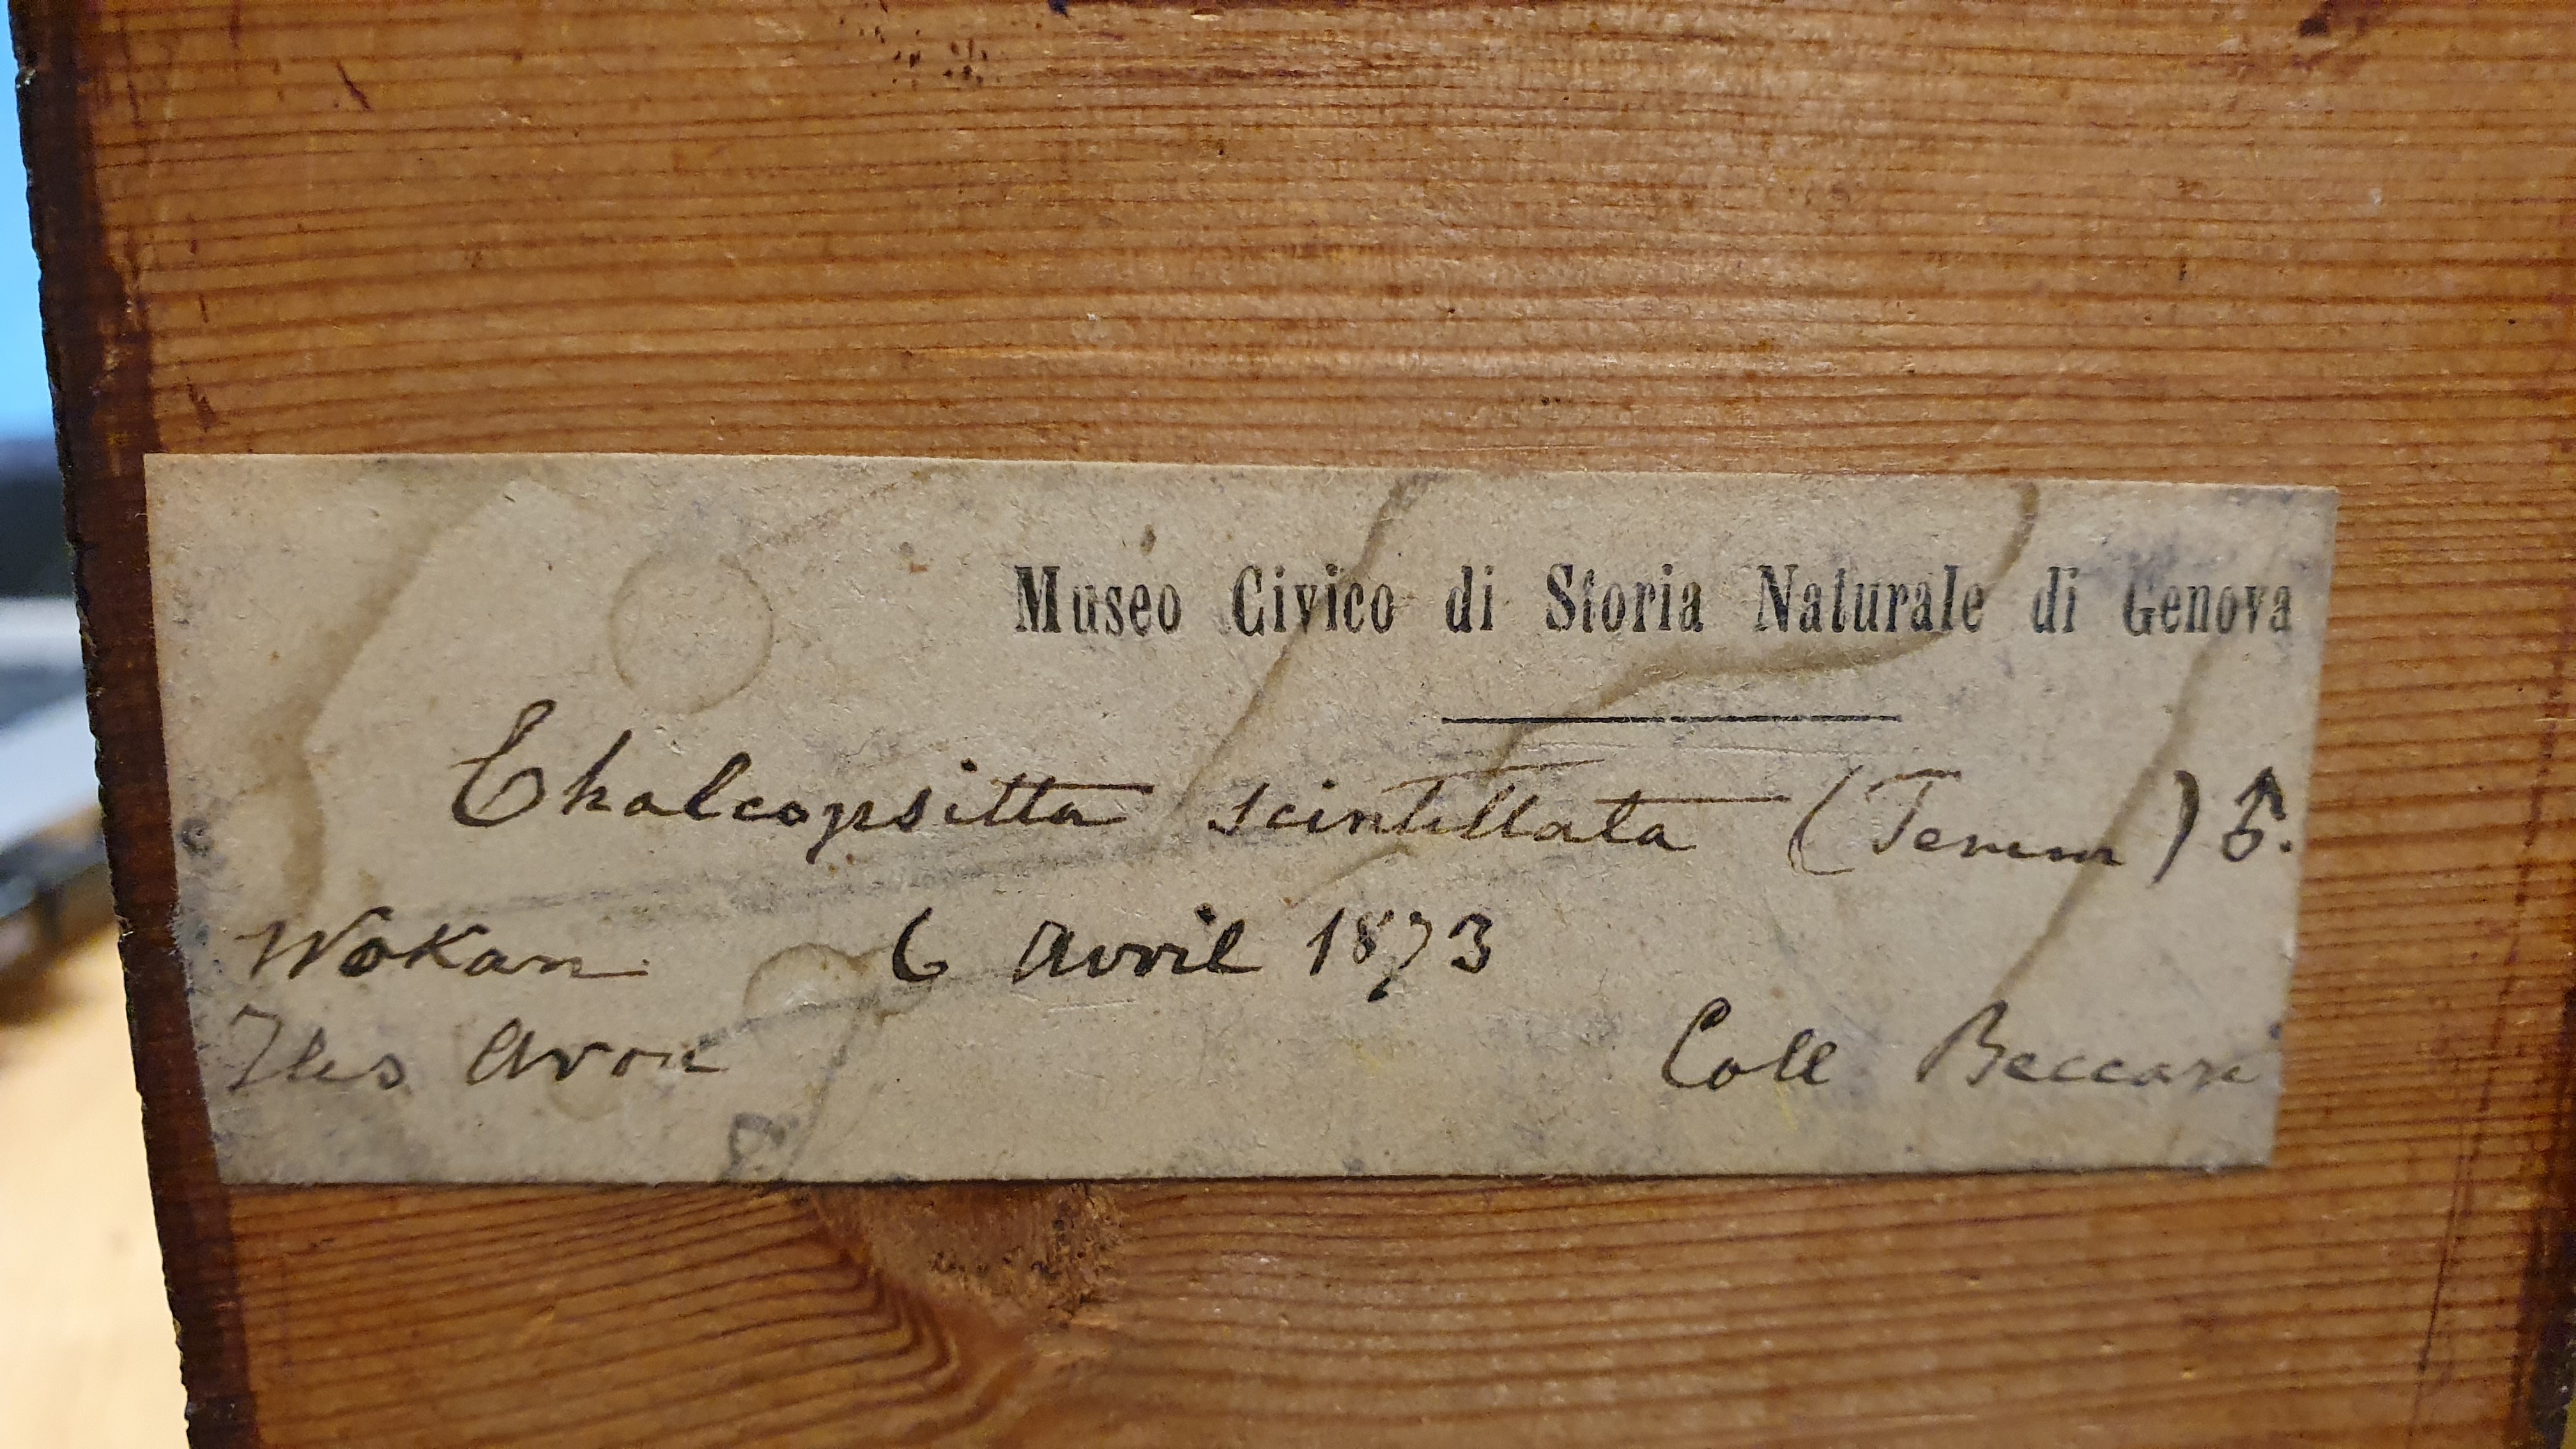 Museo Civico di Storia Naturale di Genova
Chalcopsitta scintillata (Temm) ♂.
Wokan 6 Avril 1873
Iles Arou
Coll Beccari